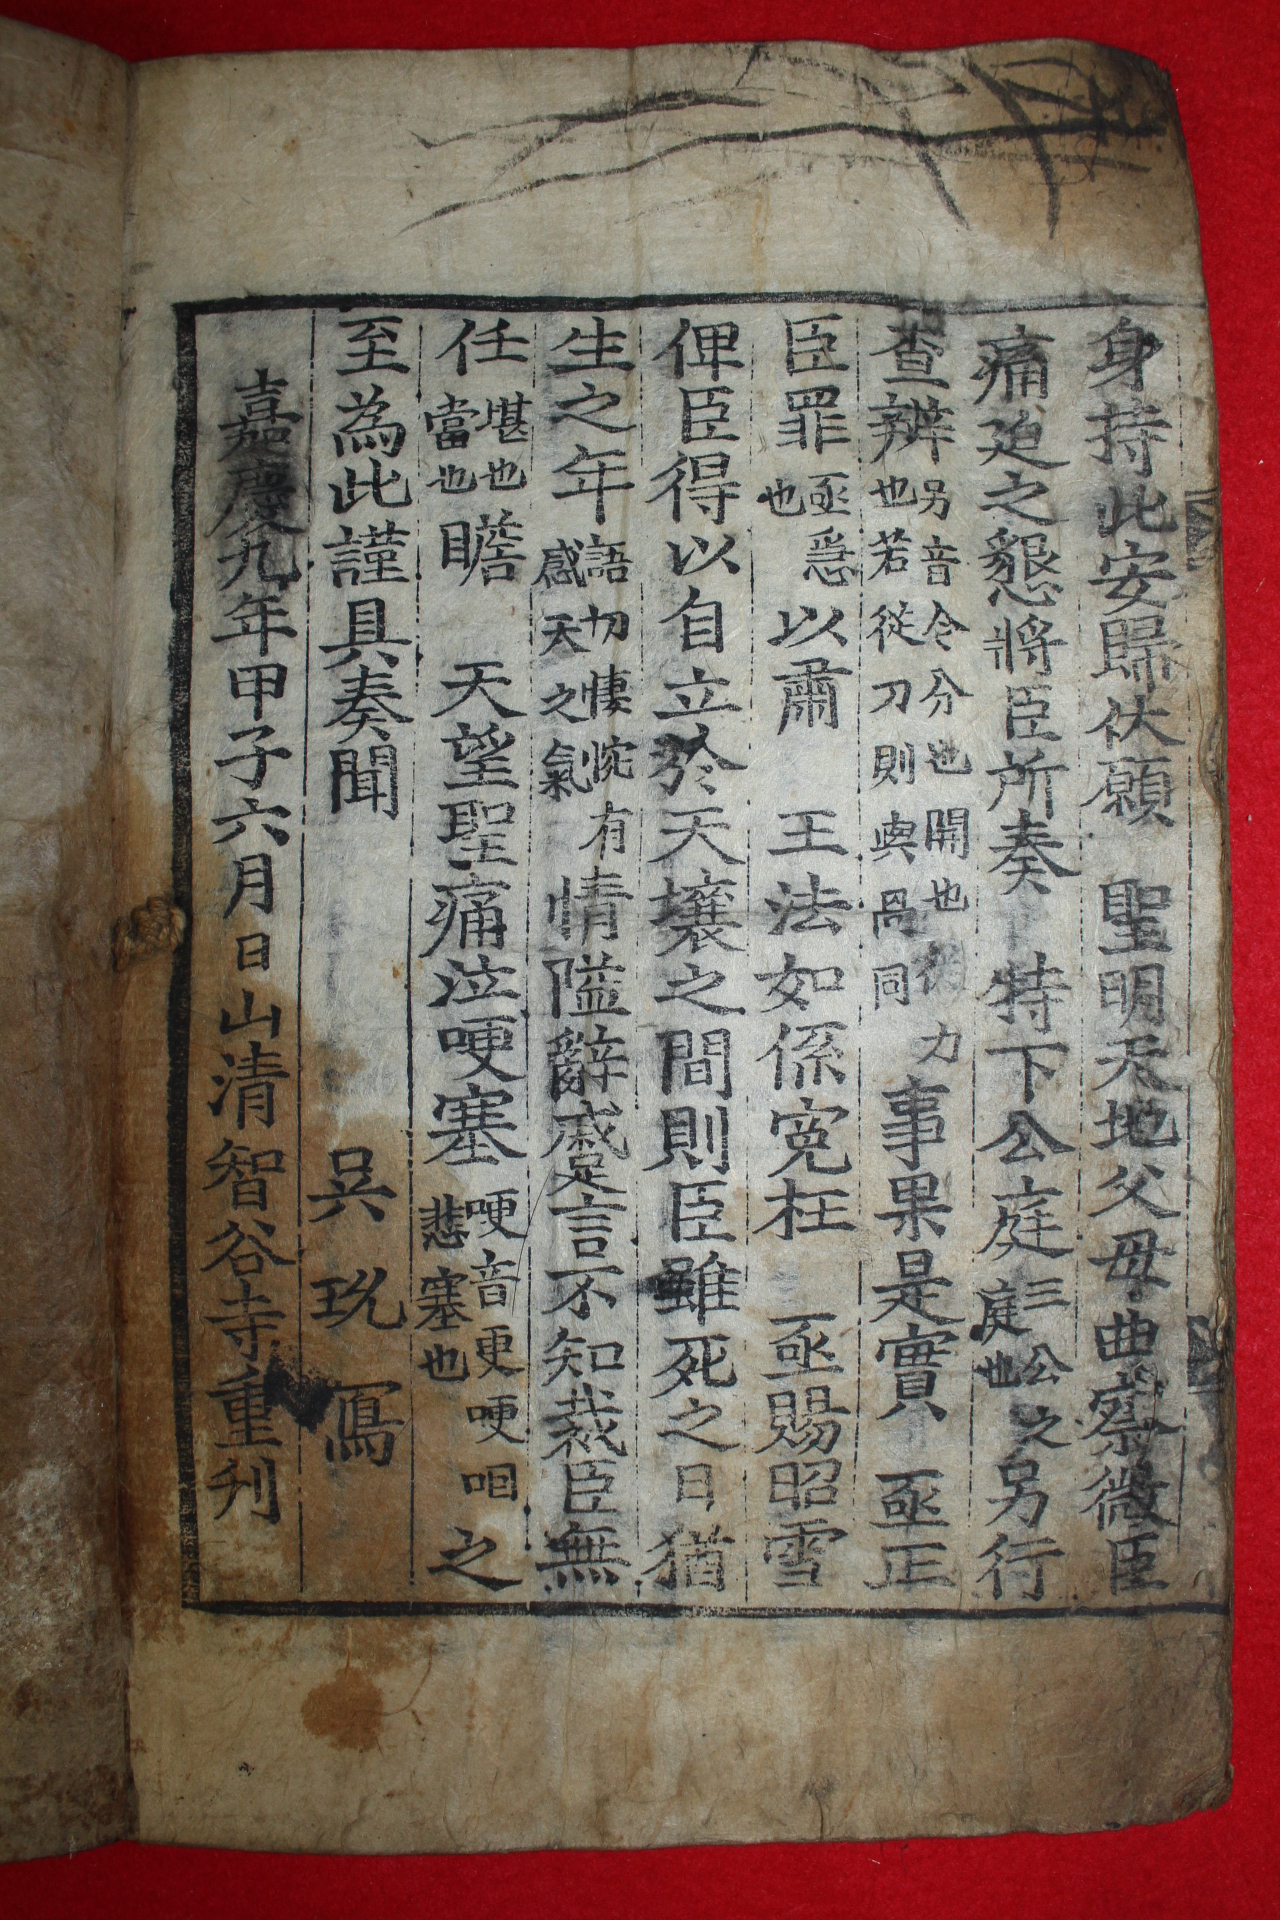 身持此安歸伏願 聖明天地父母曲察微臣
痛迫之懇將臣所奏 特下公庭三公之庭也另行
查辨另音令分也開也從力也若從刀則與咼同事果是實 亟正
臣罪亟急也以肅 王法如係寃枉 亟賜昭雪
俾臣得以自立於天壤之間則臣雖死之日猶
生之年語切悽惋有感天之氣情隘辭蹙言不知裁臣無
任堪也當也瞻 天望聖痛泣哽塞哽音更哽咽悲塞也之
至為此謹具奏聞 吳玧寫
嘉慶九年甲子六月日山清智谷寺重刋